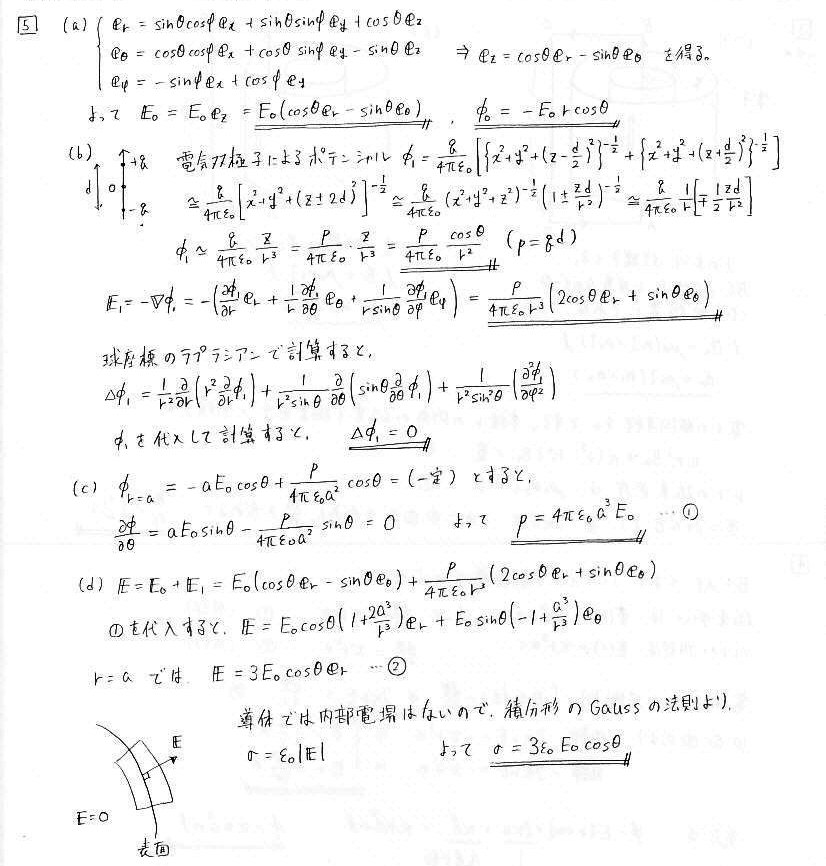 5 (a) { 𝐞r = sinθcosφ 𝐞x + sinθsinφ 𝐞y + cosθ 𝐞z
𝐞θ = cosθcosφ 𝐞x + cosθ sinφ 𝐞y − sinθ 𝐞z ⇒ 𝐞z = cosθ 𝐞r − sinθ 𝐞θ を得る。
𝐞φ = −sinφ 𝐞x + cosφ 𝐞y
よって 𝐄0 = E0 𝐞z = E0(cosθ 𝐞r − sinθ 𝐞θ) , φ0 = −E0 r cosθ
(b) d 0 +q −q 電気双極子によるポテンシャル φ1 = q/4πε0 [{x²+y²+(z−d/2)²}^(-1/2) + {x²+y²+(z+d/2)²}^(-1/2)]
≃ q/4πε0 [x²+y²+(z±2d)²]^(-1/2) ≃ q/4πε0 (x²+y²+z²)^(-1/2) (1± zd/r²)^(-1/2) ≃ q/4πε0 1/r [∓ 1/2 zd/r²]
φ1 ≃ q/4πε0 z/r³ = p/4πε0 · z/r³ = p/4πε0 cosθ/r² (p=qd)
𝐄1 = −∇φ1 = −(∂φ1/∂r 𝐞r + 1/r ∂φ1/∂θ 𝐞θ + 1/(r sinθ) ∂φ1/∂φ 𝐞φ) = p/4πε0r³ (2cosθ 𝐞r + sinθ 𝐞θ)
球座標のラプラシアンで計算すると、
Δφ1 = 1/r² ∂/∂r (r² ∂/∂r φ1) + 1/(r² sinθ) ∂/∂θ (sinθ ∂/∂θ φ1) + 1/(r² sin²θ) (∂²φ1/∂φ²)
φ1 を代入して計算すると、 Δφ1 = 0
(c) φr=a = −aE0cosθ + p/4πε0a² cosθ = (一定) とすると、
∂φ/∂θ = aE0sinθ − p/4πε0a² sinθ = 0 よって p = 4πε0a³E0 …①
(d) 𝐄 = 𝐄0 + 𝐄1 = E0(cosθ 𝐞r − sinθ 𝐞θ) + p/4πε0r³ (2cosθ 𝐞r + sinθ 𝐞θ)
①を代入すると、 𝐄 = E0cosθ(1+2a³/r³)𝐞r + E0sinθ(−1+a³/r³)𝐞θ
r=a では 𝐄 = 3E0cosθ 𝐞r …②
導体では内部電場はないので、積分形のGaussの法則より、
σ = ε0|𝐄| よって σ = 3ε0 E0 cosθ
𝐄
E=0
表面